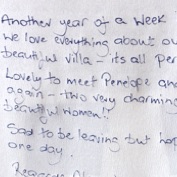 Another year of a week
we love everything about ou
beautiful villa - its all per
Lovely to meet Penelope and
again - two very charming
beautiful women!!
Sad to be leaving but hop
one day.
Regards